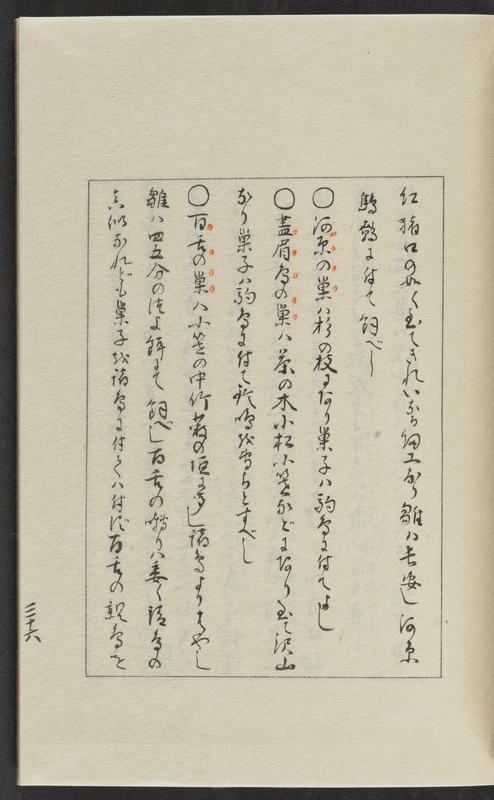 紅猪口の如く至てきれいなる細工なり雛ハ長安し河原
鶸に付て飼べし
〇河原の巣ハ杉の枝にあり巣子ハ駒鳥に付てよし
〇畫眉鳥の巣ハ茶の木小松小笹などにあり至て沢山
なり巣子ハ駒鳥に付て鳴を専らとすべし
〇百舌の巣ハ小笹の中竹藪の垣に多し諸鳥よりもはやし
雛ハ四五分の餌にて飼べし百舌の囀りハ委く諸鳥の
真似なれども巣子を諸鳥に付てハ付ず百舌の親鳥を
三十六